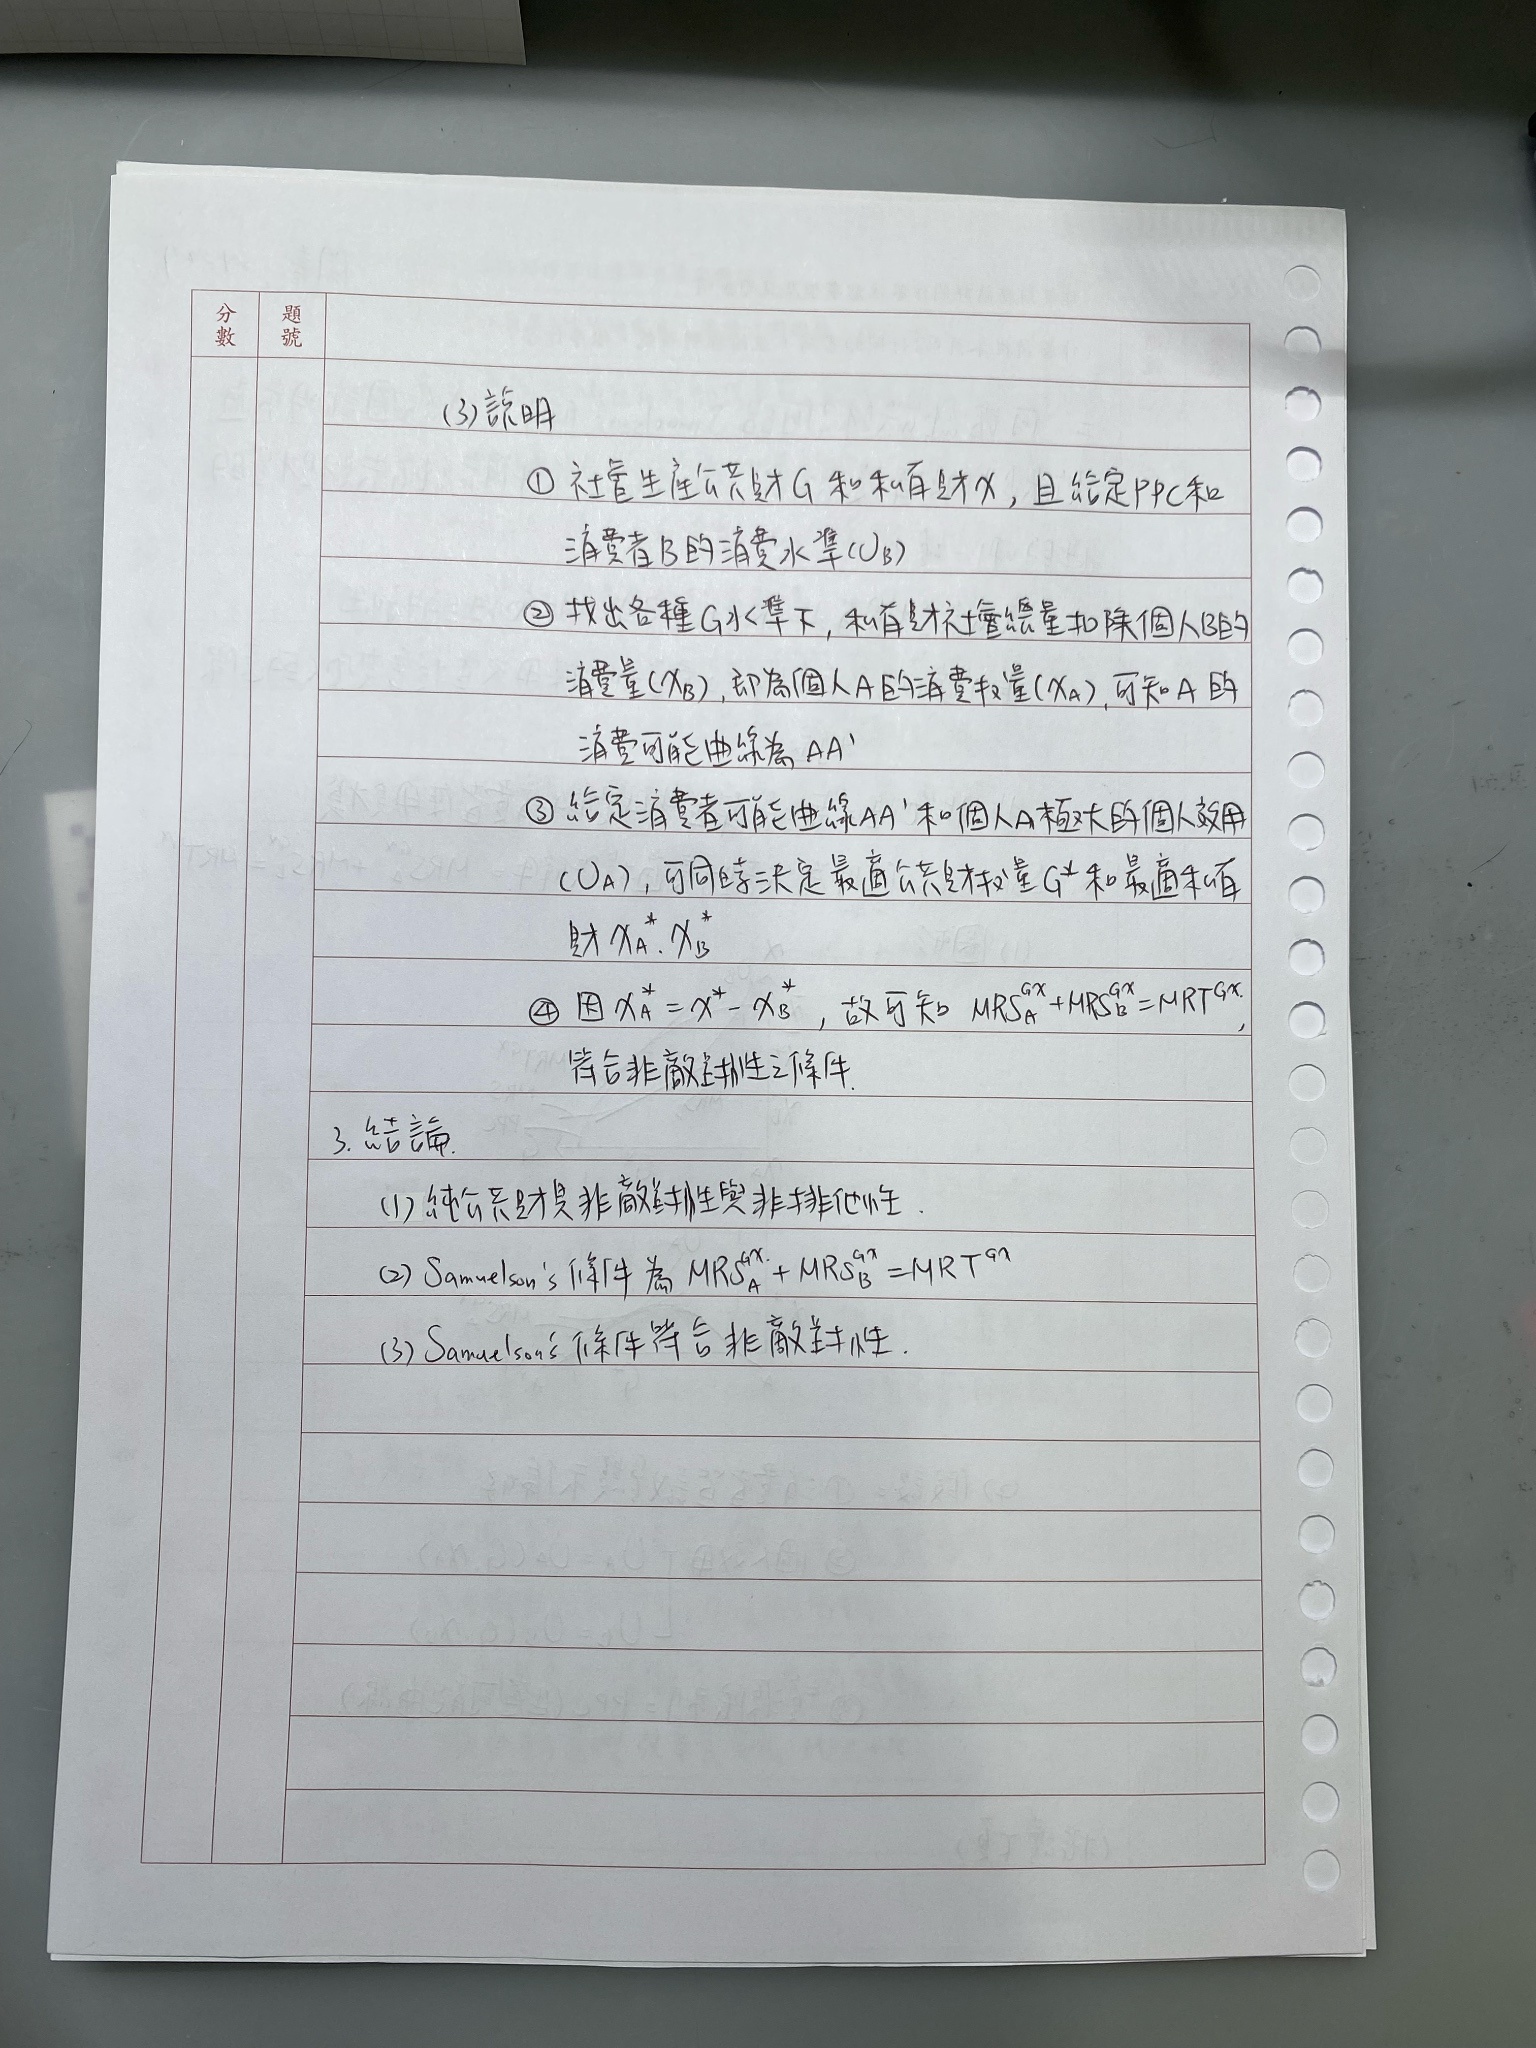 分數 題號
(3) 說明
① 社會生產公共財G和私有財X, 且給定PPC和
消費者B的消費水準(UB)
② 找出各種G水準下, 私有財社會總量扣除個人B的
消費量(XB), 即為個人A的消費數量(XA), 可知A的
消費可能曲線為AA'
③ 給定消費者可能曲線AA'和個人A極大的個人效用
(UA), 可同時決定最適公共財數量G*和最適私有
財XA*. XB*
④ 因XA* = X* - XB*, 故可知 MRS_A^GX + MRS_B^GX = MRT^GX,
符合非敵對性之條件.
3. 結論.
(1) 純公共財具非敵對性與非排他性.
(2) Samuelson's 條件為 MRS_A^GX + MRS_B^GX = MRT^GX
(3) Samuelson's 條件符合非敵對性.